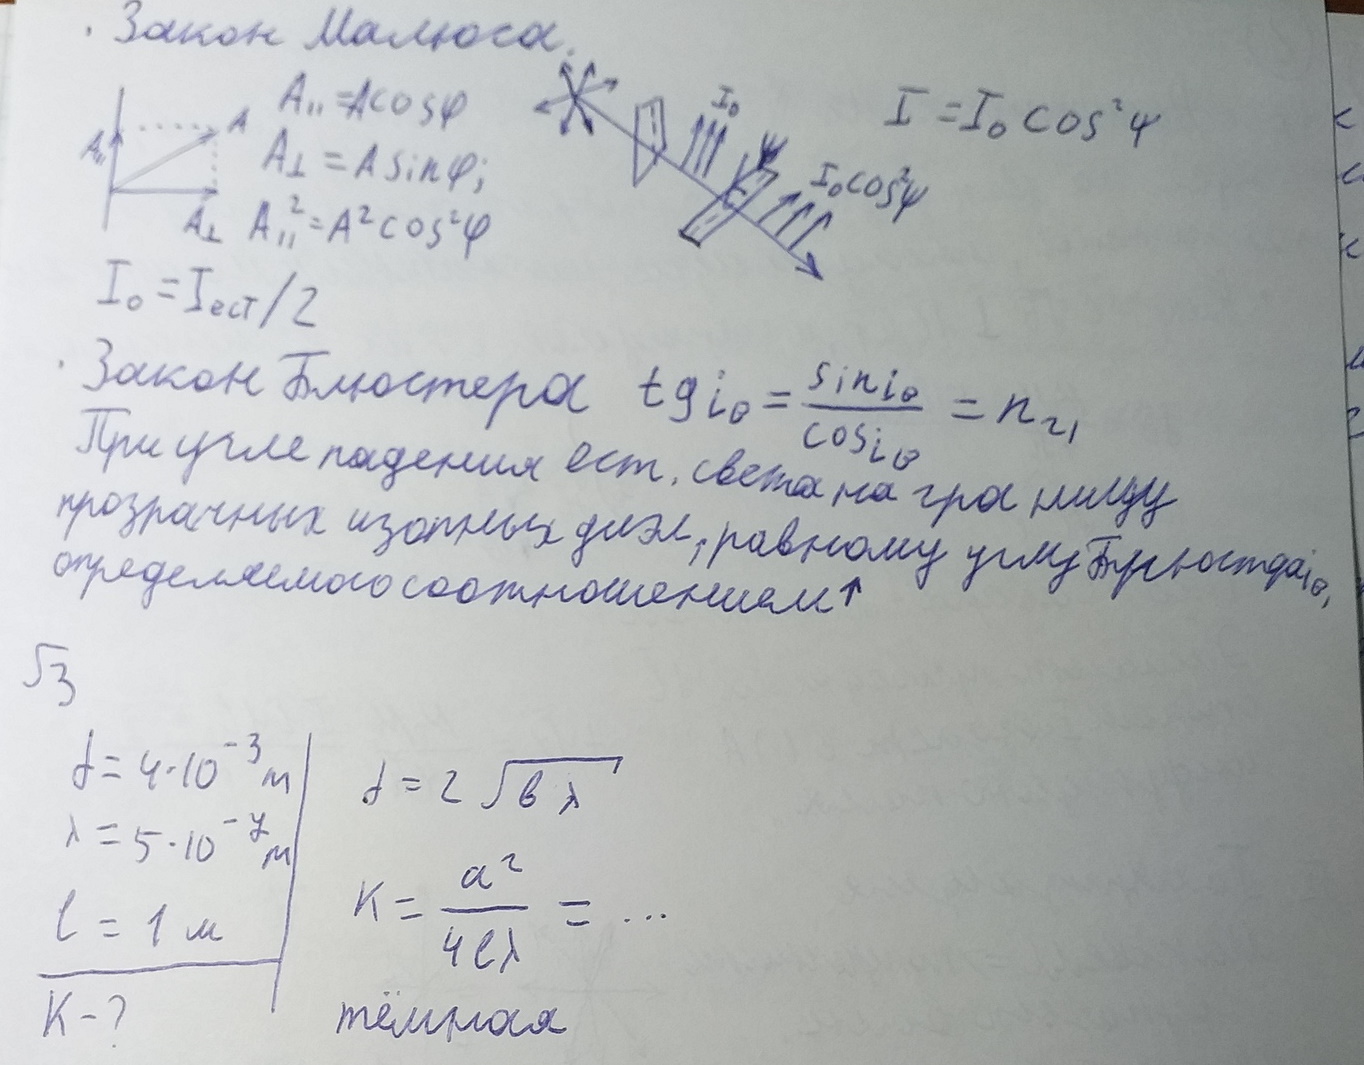 · Закон Малюса.
A₁₁ = Acosφ
A⊥ = A sinφ;
A₁₁² = A² cos²φ
A
A₁₁
A⊥
I₀
I₀cos²φ
I = I₀ cos²φ
I₀ = Iест/2
· Закон Блюстера tg iθ = sin iθ / cos iθ = n₂₁
При угле падения ест. света на границу
прозрачных изопных диэл, равному углу iθ,
определяемого соотношением↑
√3
d = 4·10⁻³ м
λ = 5·10⁻⁷ м
l = 1 м
K - ?
d = 2 √вλ
K = a² / 4lλ = ...
тёмная